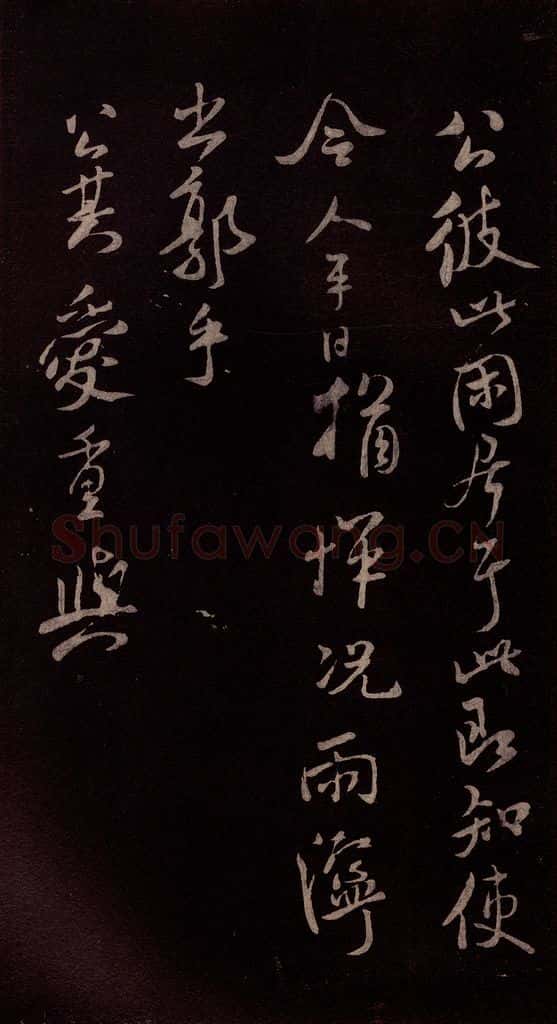 公彼此閑居于此既知使
令人平日指揮況雨濘
出郭乎
公其愛重與
Shufawang.CN